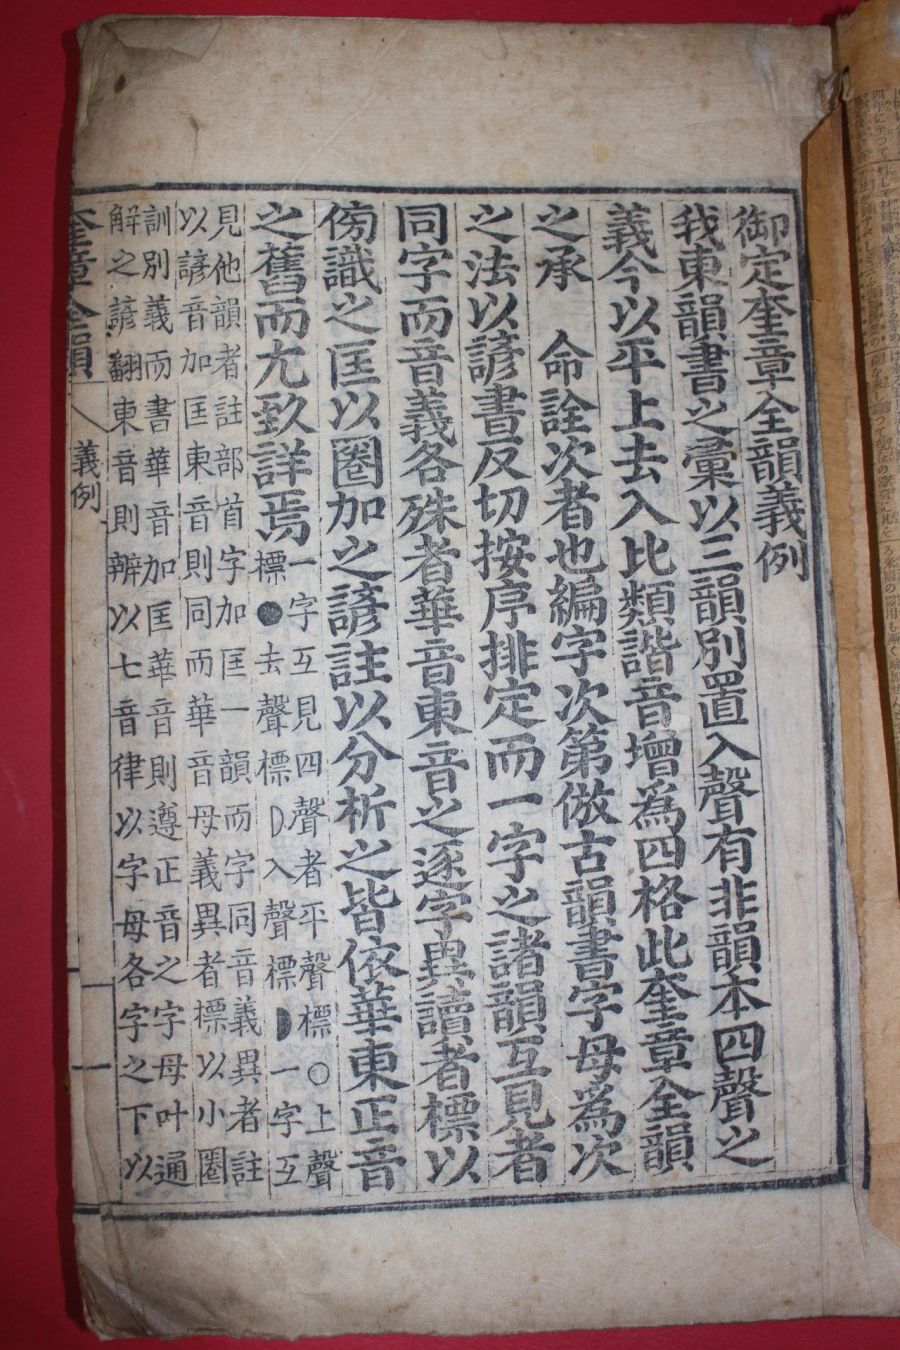 御定奎章全韻義例
我東韻書之彙以三韻別置入聲有非韻本四聲之
義今以平上去入比類諧音增爲四格此奎章全韻
之承　命詮次者也編字次第倣古韻書字母爲次
之法以諺書反切按序排定而一字之諸韻互見者
同字而音義各殊者華音東音之逐字異讀者標以
傍識之匡以圈加之諺註以分析之皆依華東正音
之舊而尤致詳焉
一字互見四聲者平聲標○上聲
標●去聲標D入聲標◗一字互
見他韻者註部首字加匡一韻而字同音義異者註
以諺音加匡東音則同而華音母義異者標以小圈
訓別義而書華音加匡華音則遵正音之字母叶通
解之諺翻東音則辨以七音律以字母各字之下以
奎章全韻　義例